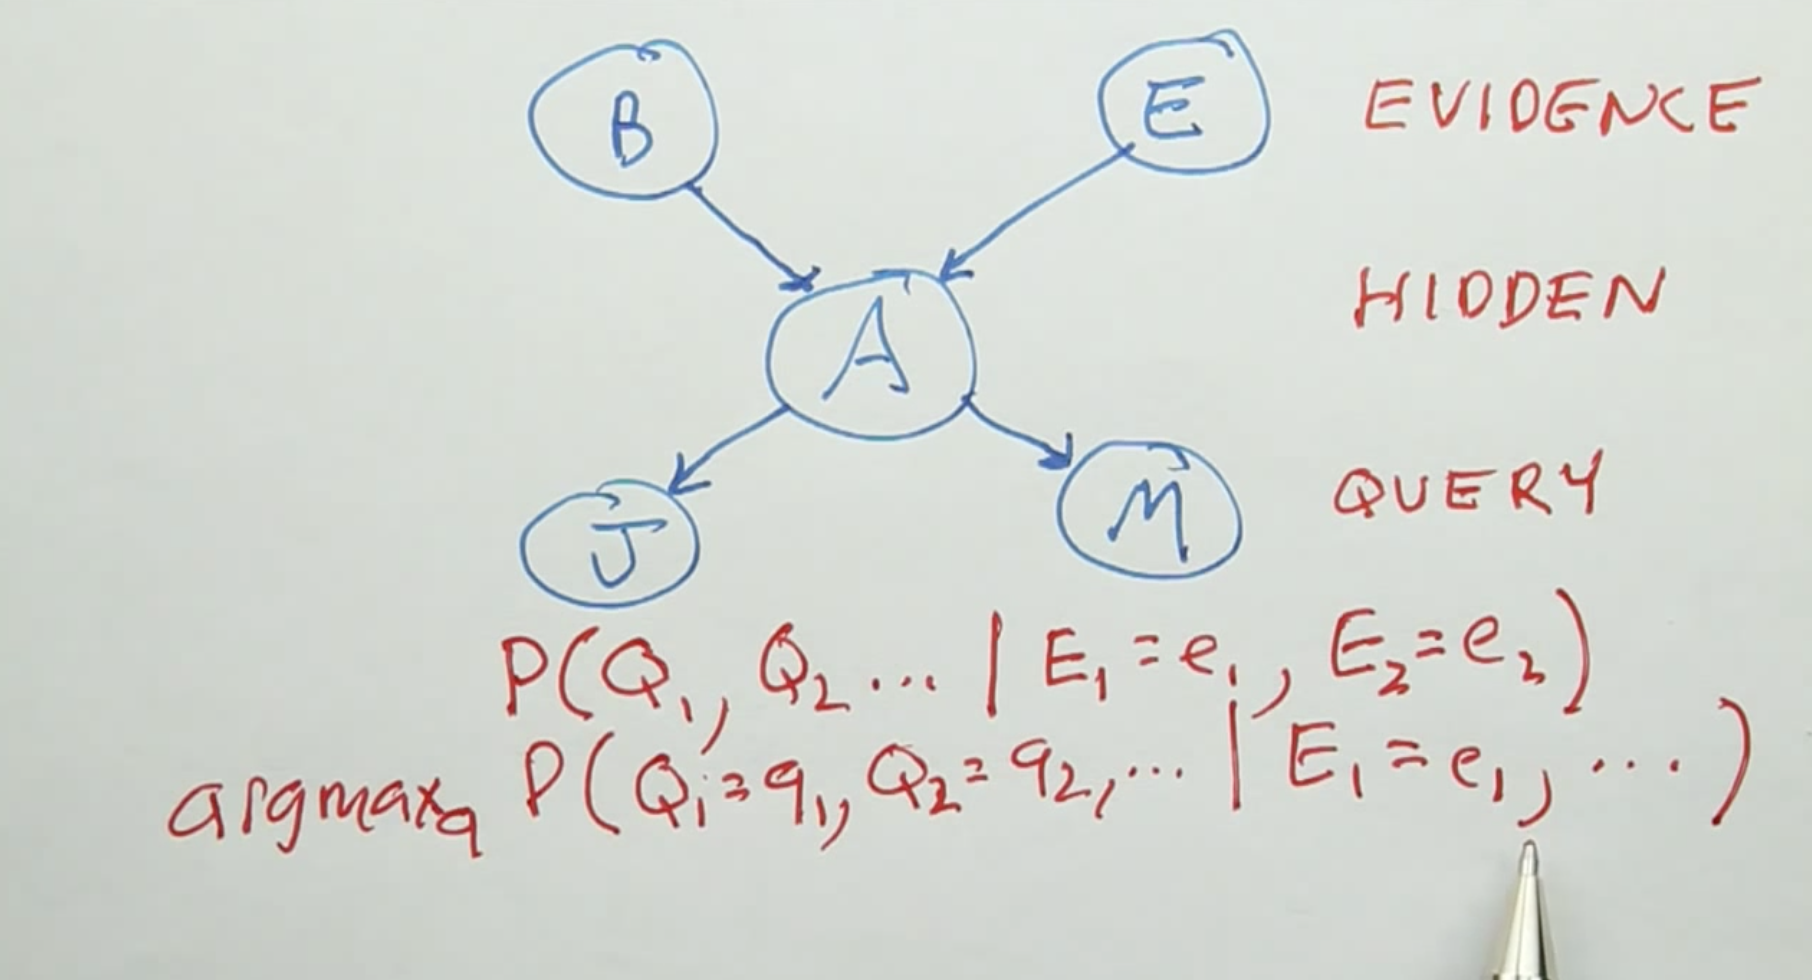 B
E
EVIDENCE
A
HIDDEN
J
M
QUERY
P(Q₁, Q₂ ... | E₁ = e₁, E₂ = e₂)
argmax_q P(Q₁ = q₁, Q₂ = q₂, ... | E₁ = e₁, ...)